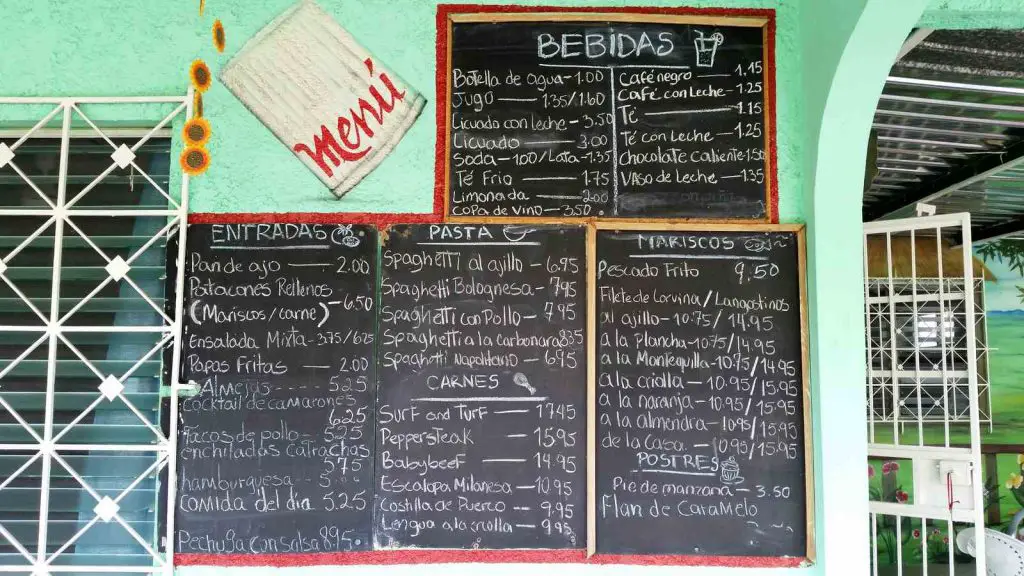 Menú
BEBIDAS
Botella de agua - 1.00
Jugo — 1.35/1.60
Licuado con leche - 3.50
Licuado — 3.00
Soda - 1.00/Lata - 1.35
Té Frio — 1.75
Limonada — 2.00
Copa de vino - 3.50
Café negro — 1.15
Café con Leche - 1.25
Té — 1.15
Té con Leche - 1.25
chocolate caliente - 1.50
Vaso de Leche - 1.35
ENTRADAS
Pan de ajo — 2.00
Patacones Rellenos
(Mariscos/carne) - 6.50
Ensalada Mixta - 3.75/6.25
Papas Fritas — 2.00
Almejas --- 5.25
cocktail de camarones
6.25
tacos de pollo - 5.25
enchiladas catrachas
5.75
hamburguesa -
comida del dia 5.25
Pechuga con salsa 8.95
PASTA
Spaghetti al ajillo - 6.95
Spaghetti Bolognesa - 7.95
Spaghetti con Pollo - 7.95
Spaghetti a la carbonara 8.35
Spaghetti Napolitano - 6.95
CARNES
Surf and Turf — 17.95
Peppersteak — 15.95
Babybeef — 14.95
Escalopa Milanesa - 10.95
Costilla de Puerco - 9.95
Lengua a la criolla - 9.95
MARISCOS
Pescado Frito 9.50
Filete de Corvina/Langostinos
al ajillo - 10.75/14.95
a la Plancha - 10.75/14.95
a la Mantequilla - 10.75/14.95
a la criolla - 10.95/15.95
a la naranja - 10.95/15.95
a la almendra - 10.95/15.95
de la Casa - 10.95/15.95
POSTRES
Pie de manzana - 3.50
Flan de Caramelo